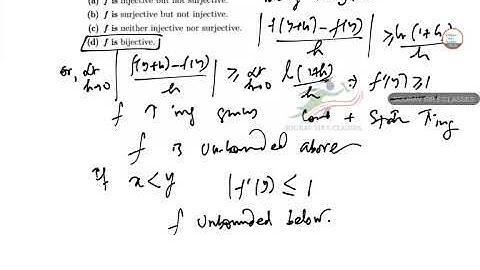 (a) f is injective but not surjective.
(b) f is surjective but not injective.
(c) f is neither injective nor surjective.
(d) f is bijective.
|f(y+h)-f(y)/h| ≥ h(1+h)/h
or, Lt h→0 |f(y+h)-f(y)/h| ≥ Lt h→0 h(1+h)/h ⇒ f'(y) ≥ 1
SOURAV SIR'S CLASSES
f ↑ing cont +
f is unbounded above
If x<y |f'(y) ≤ 1
f unbounded below.